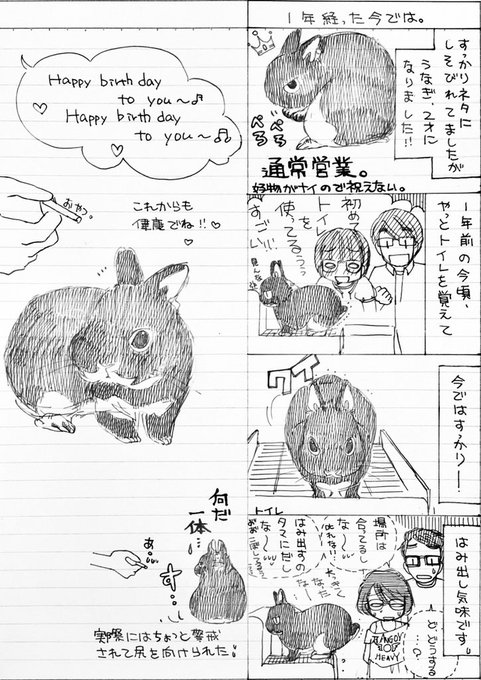 1年経った今では。
すっかりネタに
しそびれてましたが
うなぎ、2才に
なりました!!
ぺろ
ぺろ
通常営業。
好物がナイので祝えない。
1年前の今頃、
やっとトイレを覚えて
初めて
トイレ
使ってるぅっ
すごい!!
見んなや
今ではすっかりー!
クイ
トイレ
はみ出し気味です。
場所は
合ってるし
な〜
はみ出すの
タマにだし
な〜
ど、どうする
…?
Happy birth day
to you〜♪
Happy birth day
to you〜♫
おやつ。
これからも
健康でね!!
何だ
一体…
あ…
す…
実際にはちょっと警戒
されて尻を向けられた。